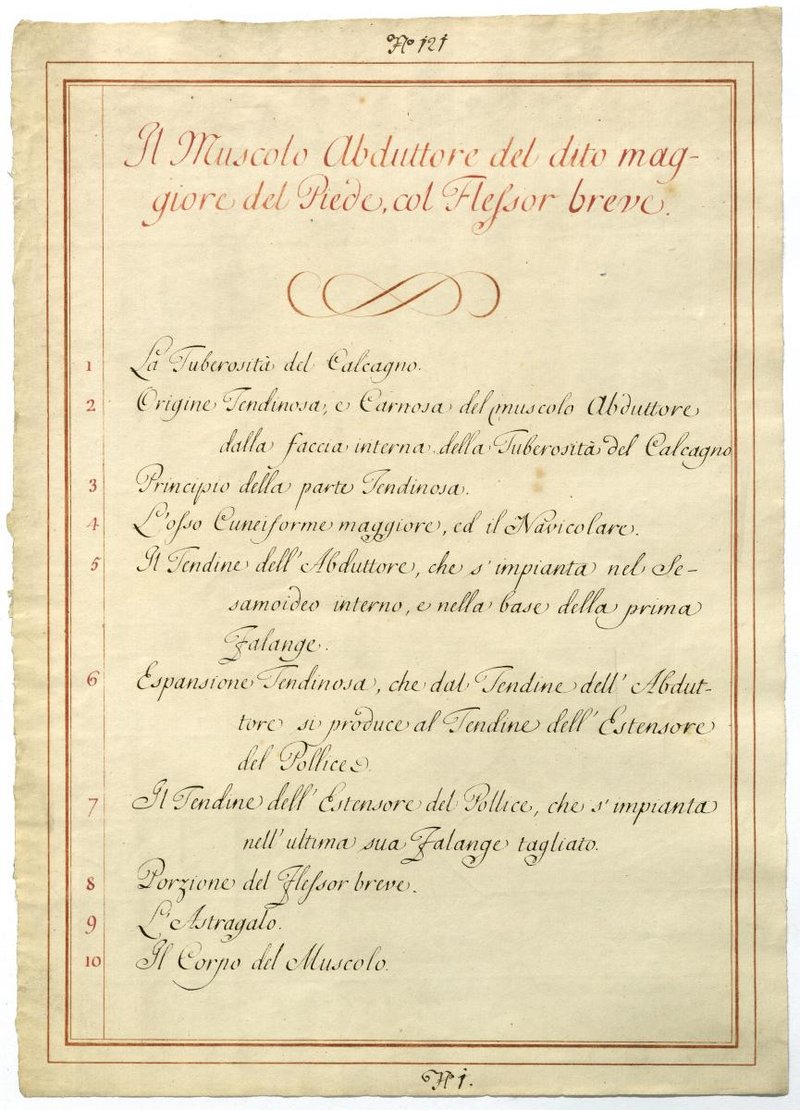 Nº 121
Il Muscolo Abduttore del dito mag-
giore del Piede, col Flessor breve.
1 La Tuberosità del Calcagno.
2 Origine Tendinosa, e Carnosa del muscolo Abduttore
dalla faccia interna della Tuberosità del Calcagno
3 Principio della parte Tendinosa.
4 L'osso Cuneiforme maggiore, ed il Navicolare.
5 Il Tendine dell'Abduttore, che s'impianta nel Se-
samoideo interno, e nella base della prima
Falange.
6 Espansione Tendinosa, che dal Tendine dell'Abdut-
tore si produce al Tendine dell'Estensore
del Pollice.
7 Il Tendine dell'Estensore del Pollice, che s'impianta
nell'ultima sua Falange tagliato.
8 Porzione del Flessor breve.
9 L'Astragalo.
10 Il Corpo del Muscolo.
Nº 1.